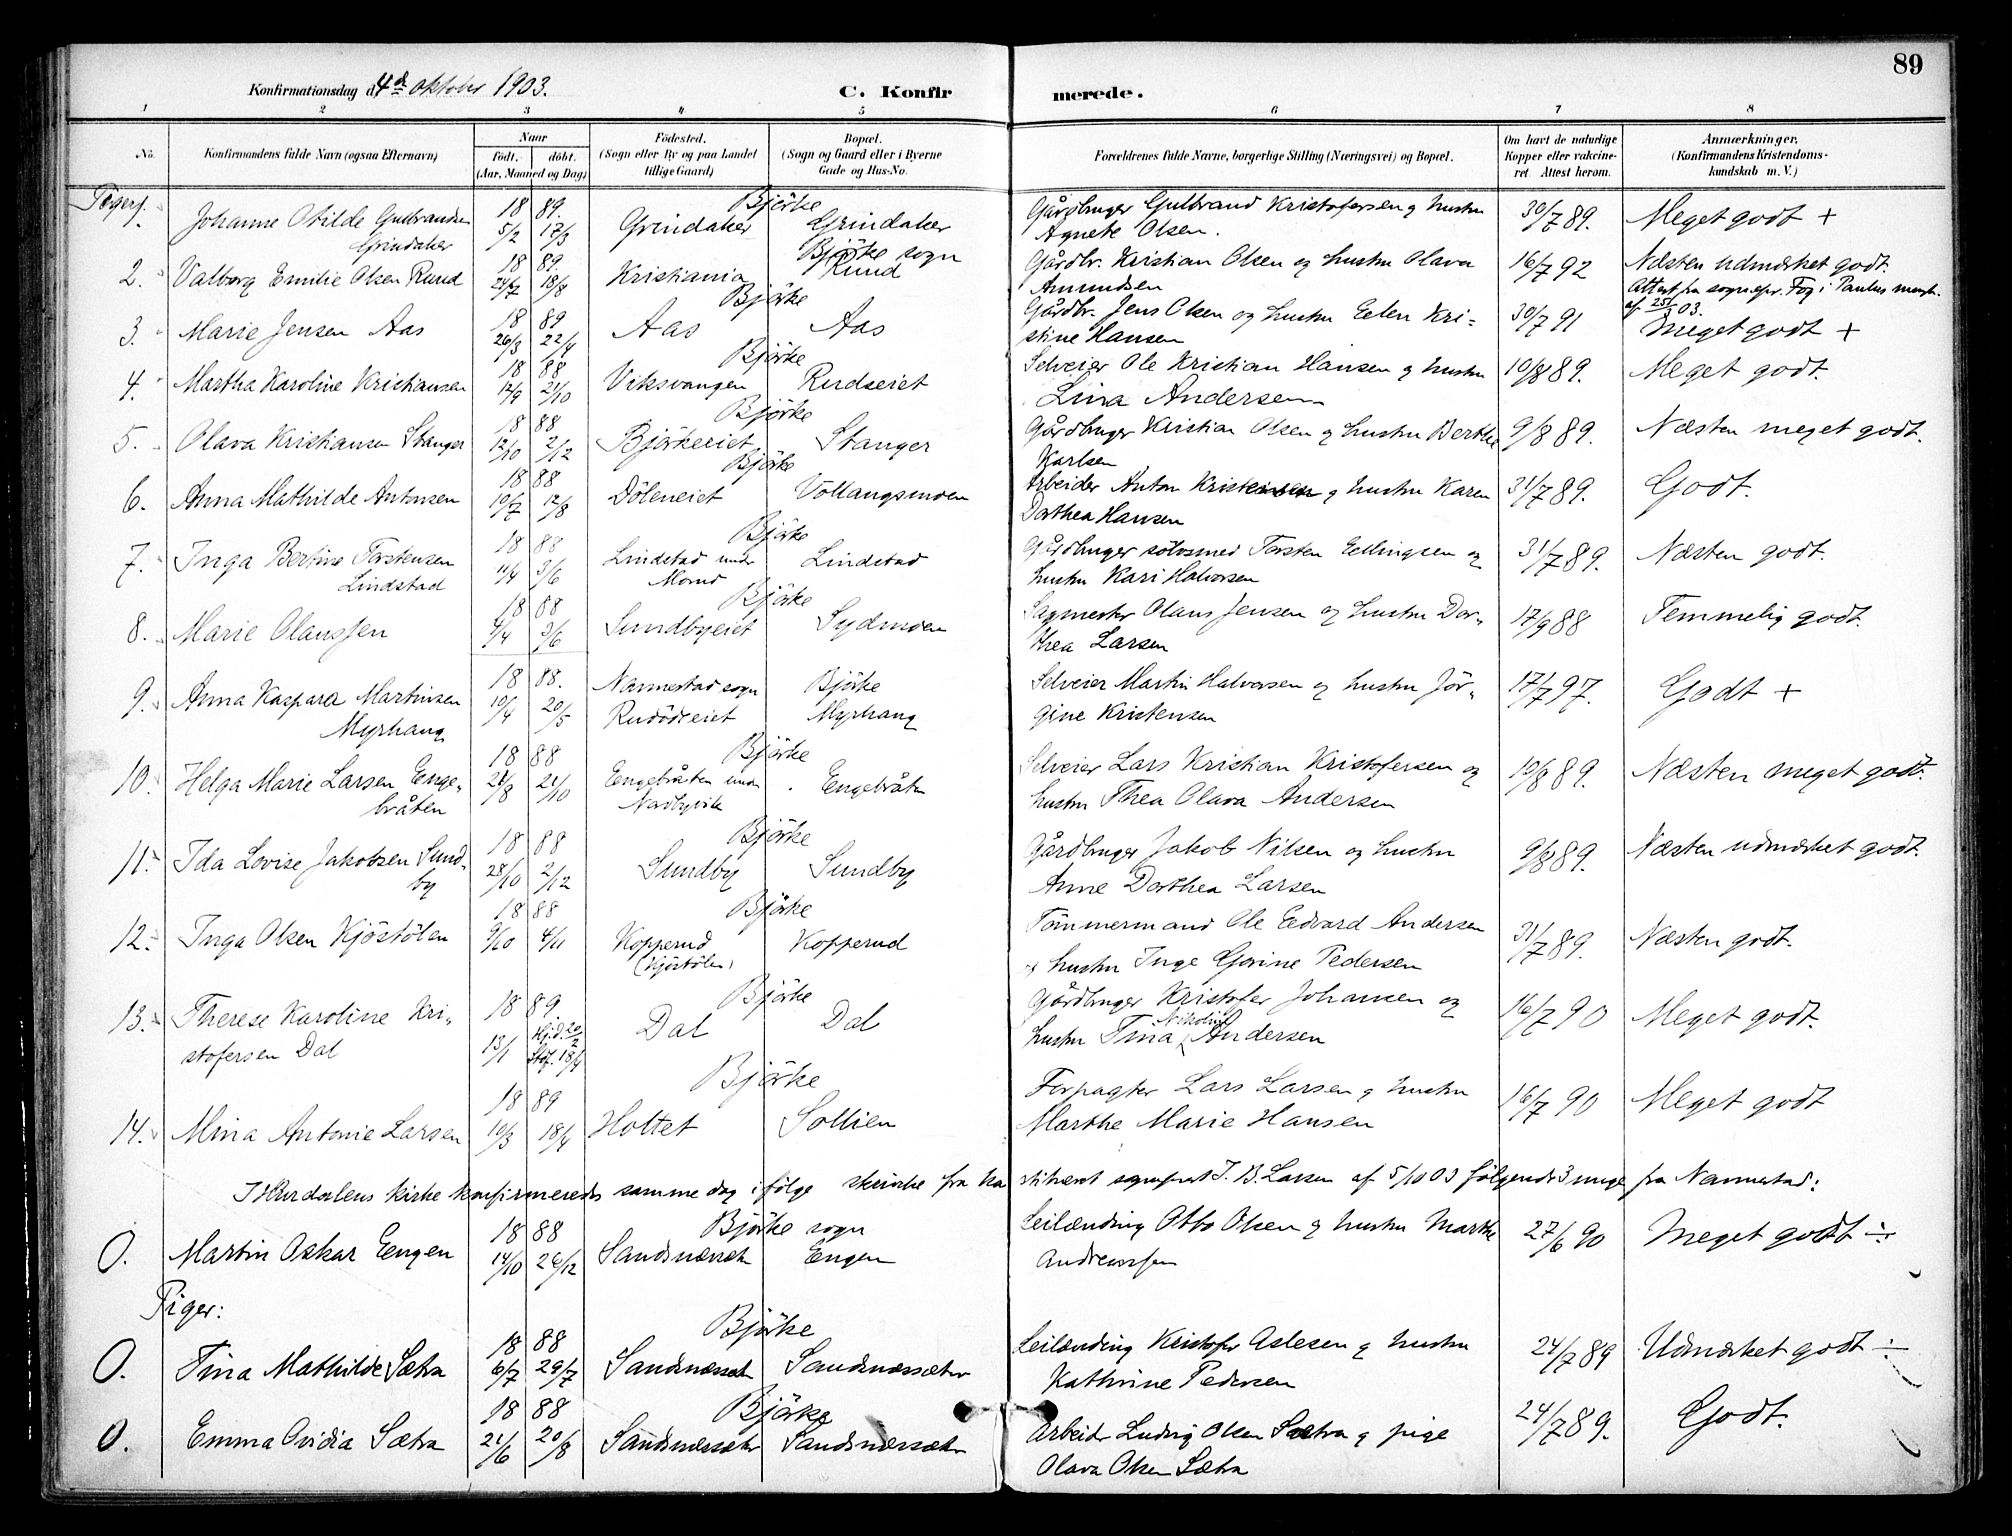 89
Konfirmationsdag d. 4de oktober 1903.
C. Konfirmerede.
1 2 3 4 5 6 7 8
No.
Konfirmandens fulde Navn (ogsaa Efternavn)
Naar
født. døbt.
(Aar, Maaned og Dag)
Fødested.
(Sogn eller By og paa Landet
tillige Gaard)
Bopæl.
(Sogn og Gaard eller i Byerne
Gade og Hus-No.
Forældrenes fulde Navne, borgerlige Stilling (Næringsvei) og Bopæl.
Om havt de naturlige
Kopper eller vakcine-
ret. Attest herom.
Anmærkninger,
(Konfirmandens Kristendoms-
kundskab m. V.)
Piger
1. Johanne Otilde Gulbrandsen 18 89. 5/2 17/3 Björke Grindaker Grindaker Gårdbruger Gulbrand Kristofersen og hustru 30/7 89. Meget godt +
Grindaker Agnete Olsen.
2. Valborg Emilie Olsen Rund 18 89. 18/8 Kristiania Björke sogn Rund Gårdbr. Kristian Olsen og hustru Olava 16/7 92 Næsten udmærket godt.
Amundsen Attest fra sognepr. Fog i Paulus menigh.
af 25/3 03.
3. Marie Jensen Aas 18 89 26/3 22/4 Björke Aas Aas Gårdbr. Jens Olsen og hustru Eelen Kri- 30/7 91 Meget godt +
stine Hansen
4. Martha Karoline Kristiansen 18 88 12/9 21/10 Björke Viksvangen Rudseiet Selveier Ole Kristian Hansen og hustru 10/8 89. Meget godt.
Lina Andersen
5. Olava Kristiansen Stanger 18 88 12/10 2/12 Björke Björkeeiet Stanger Gårdbruger Kristian Olsen og hustru Berthe 9/8 89. Næsten meget godt.
Karlsen
6. Anna Mathilde Antonsen 18 88 10/7 12/8 Björke Döleneiet Vollaugsmoen Arbeider Anton Kristensen og hustru Karen 31/7 89. Godt.
Dorthea Hansen
7. Inga Bertine Torstensen 18 88 11/4 3/6 Björke Lindstad under Lindstad Gårdbruger sölvsmed Torsten Eellingsen og 31/7 89. Næsten godt.
Lindstad Morud hustru Kari Halvorsen
8. Marie Olaussen 18 88 4/4 3/6 Björke Sundbyeiet Sydmoen Sagmester Olaus Jensen og hustru Dor- 17/9 88 Temmelig godt.
thea Larsen
9. Anna Kaspara Martinsen 18 88. 10/4 20/5 Nannestad sogn Björke Selveier Martin Halvorsen og hustru Jör- 17/7 97. Godt +
Myrhaug Rudödseiet Myrhaug gine Kristensen
10. Helga Marie Larsen Enge- 18 88 21/8 21/10 Björke Eengebråten under Eengebråten Selveier Lars Kristian Kristofersen og 10/8 89. Næsten meget godt.
bråten Nadbyvik hustru Thea Olava Andersen
11. Ida Lovise Jakobsen Sund- 18 88 28/10 2/12 Björke Sundby Sundby Gårdbruger Jakob Nilsen og hustru 9/8 89. Næsten udmærket godt.
by Anne Dorthea Larsen
12. Inga Olsen Kjöstölen 18 88 9/10 4/11 Björke Kopperud Kopperud Tömmermand Ole Eedvard Andersen 31/7 89. Næsten godt.
(Kjöstölen) og hustru Inge Gorine Pedersen
13. Therese Karoline Kri- 18 89. 13/1 Hj.d. 20/2 Björke Dal Dal Gårdbruger Kristofer Johansen og 16/7 90 Meget godt.
stofersen Dal Stöf. 18/4 hustru Tina Nikoline Andersen
14. Mina Antonie Larsen 18 89 10/3 18/4 Björke Holtet Sollien Forpagter Lars Larsen og hustru 16/7 90 Meget godt
Marthe Marie Hansen
I Hurdalens kirke konfirmeredes samme dag ifölge skrivelse fra konstitueret sognepræst J. B. Larsen af 5/10 03 fölgende 3 unge fra Nannestad:
O. Martin Oskar Eengen 18 88 14/10 26/12 Björke sogn Sandsnæssæter Engen Leilænding Otto Olsen og hustru Marthe 27/6 90 Meget godt ÷
Andreassen
Piger:
O. Tina Mathilde Sætra 18 88 6/7 29/7 Björke Sandsnæssæter Sandsnæssæter Leilænding Kristofer Aslesen og hustru 24/7 89 Udmærket godt ÷
Kathrine Pedersen
O. Emma Ovidia Sætra 18 88 21/6 20/8 Björke Sandsnæssæter Sandsnæssæter Arbeider Ludvig Olsen Sætra og pige 24/7 89. Godt.
Olava Olsen Sætra